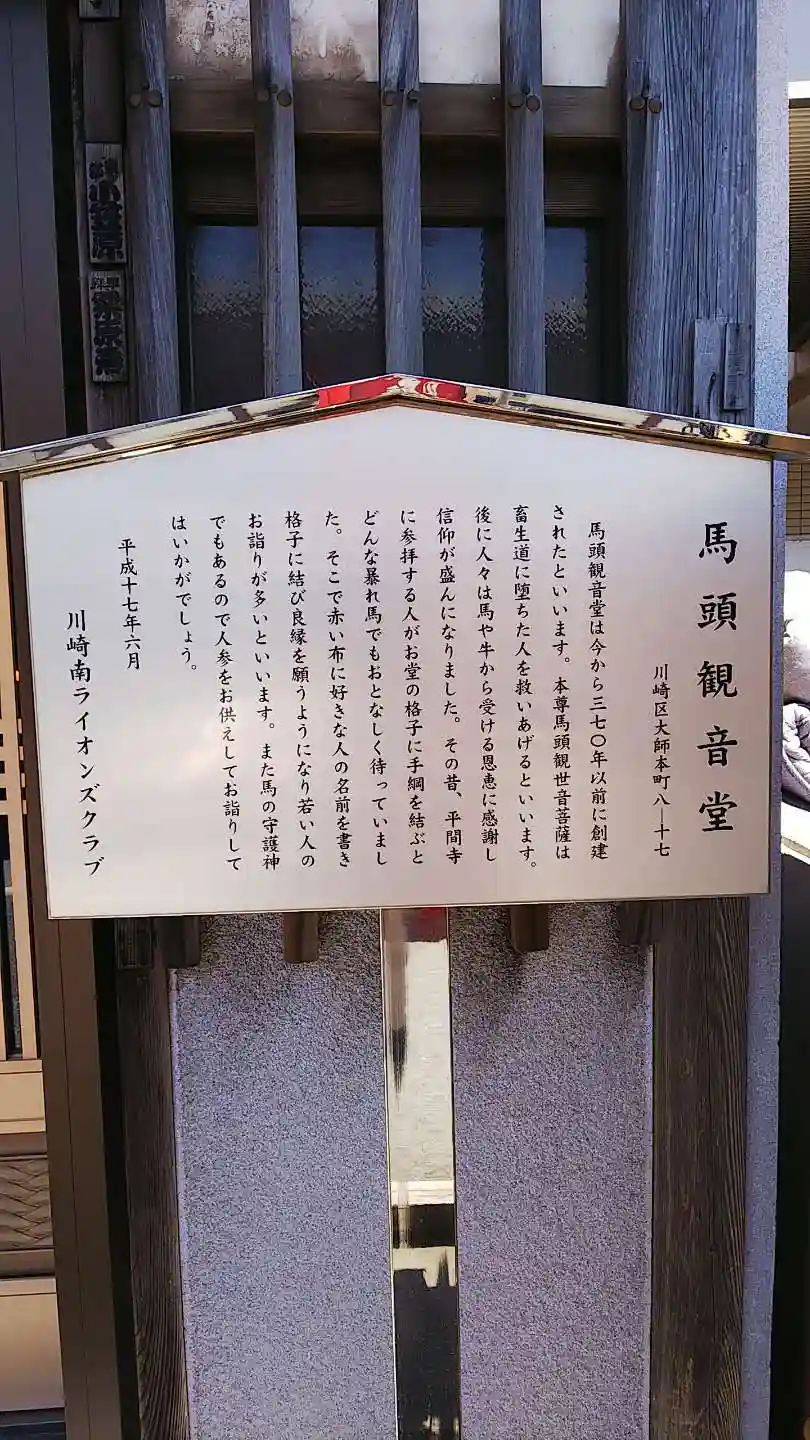 馬頭観音堂
川崎区大師本町八―十七
馬頭観音堂は今から三七〇年以前に創建
されたといいます。本尊馬頭観世音菩薩は
畜生道に堕ちた人を救いあげるといいます。
後に人々は馬や牛から受ける恩恵に感謝し
信仰が盛んになりました。その昔、平間寺
に参拝する人がお堂の格子に手綱を結ぶと
どんな暴れ馬でもおとなしく待っていまし
た。そこで赤い布に好きな人の名前を書き
格子に結び良縁を願うようになり若い人の
お詣りが多いといいます。また馬の守護神
でもあるので人参をお供えしてお詣りして
はいかがでしょう。
平成十七年六月
川崎南ライオンズクラブ
小笠原